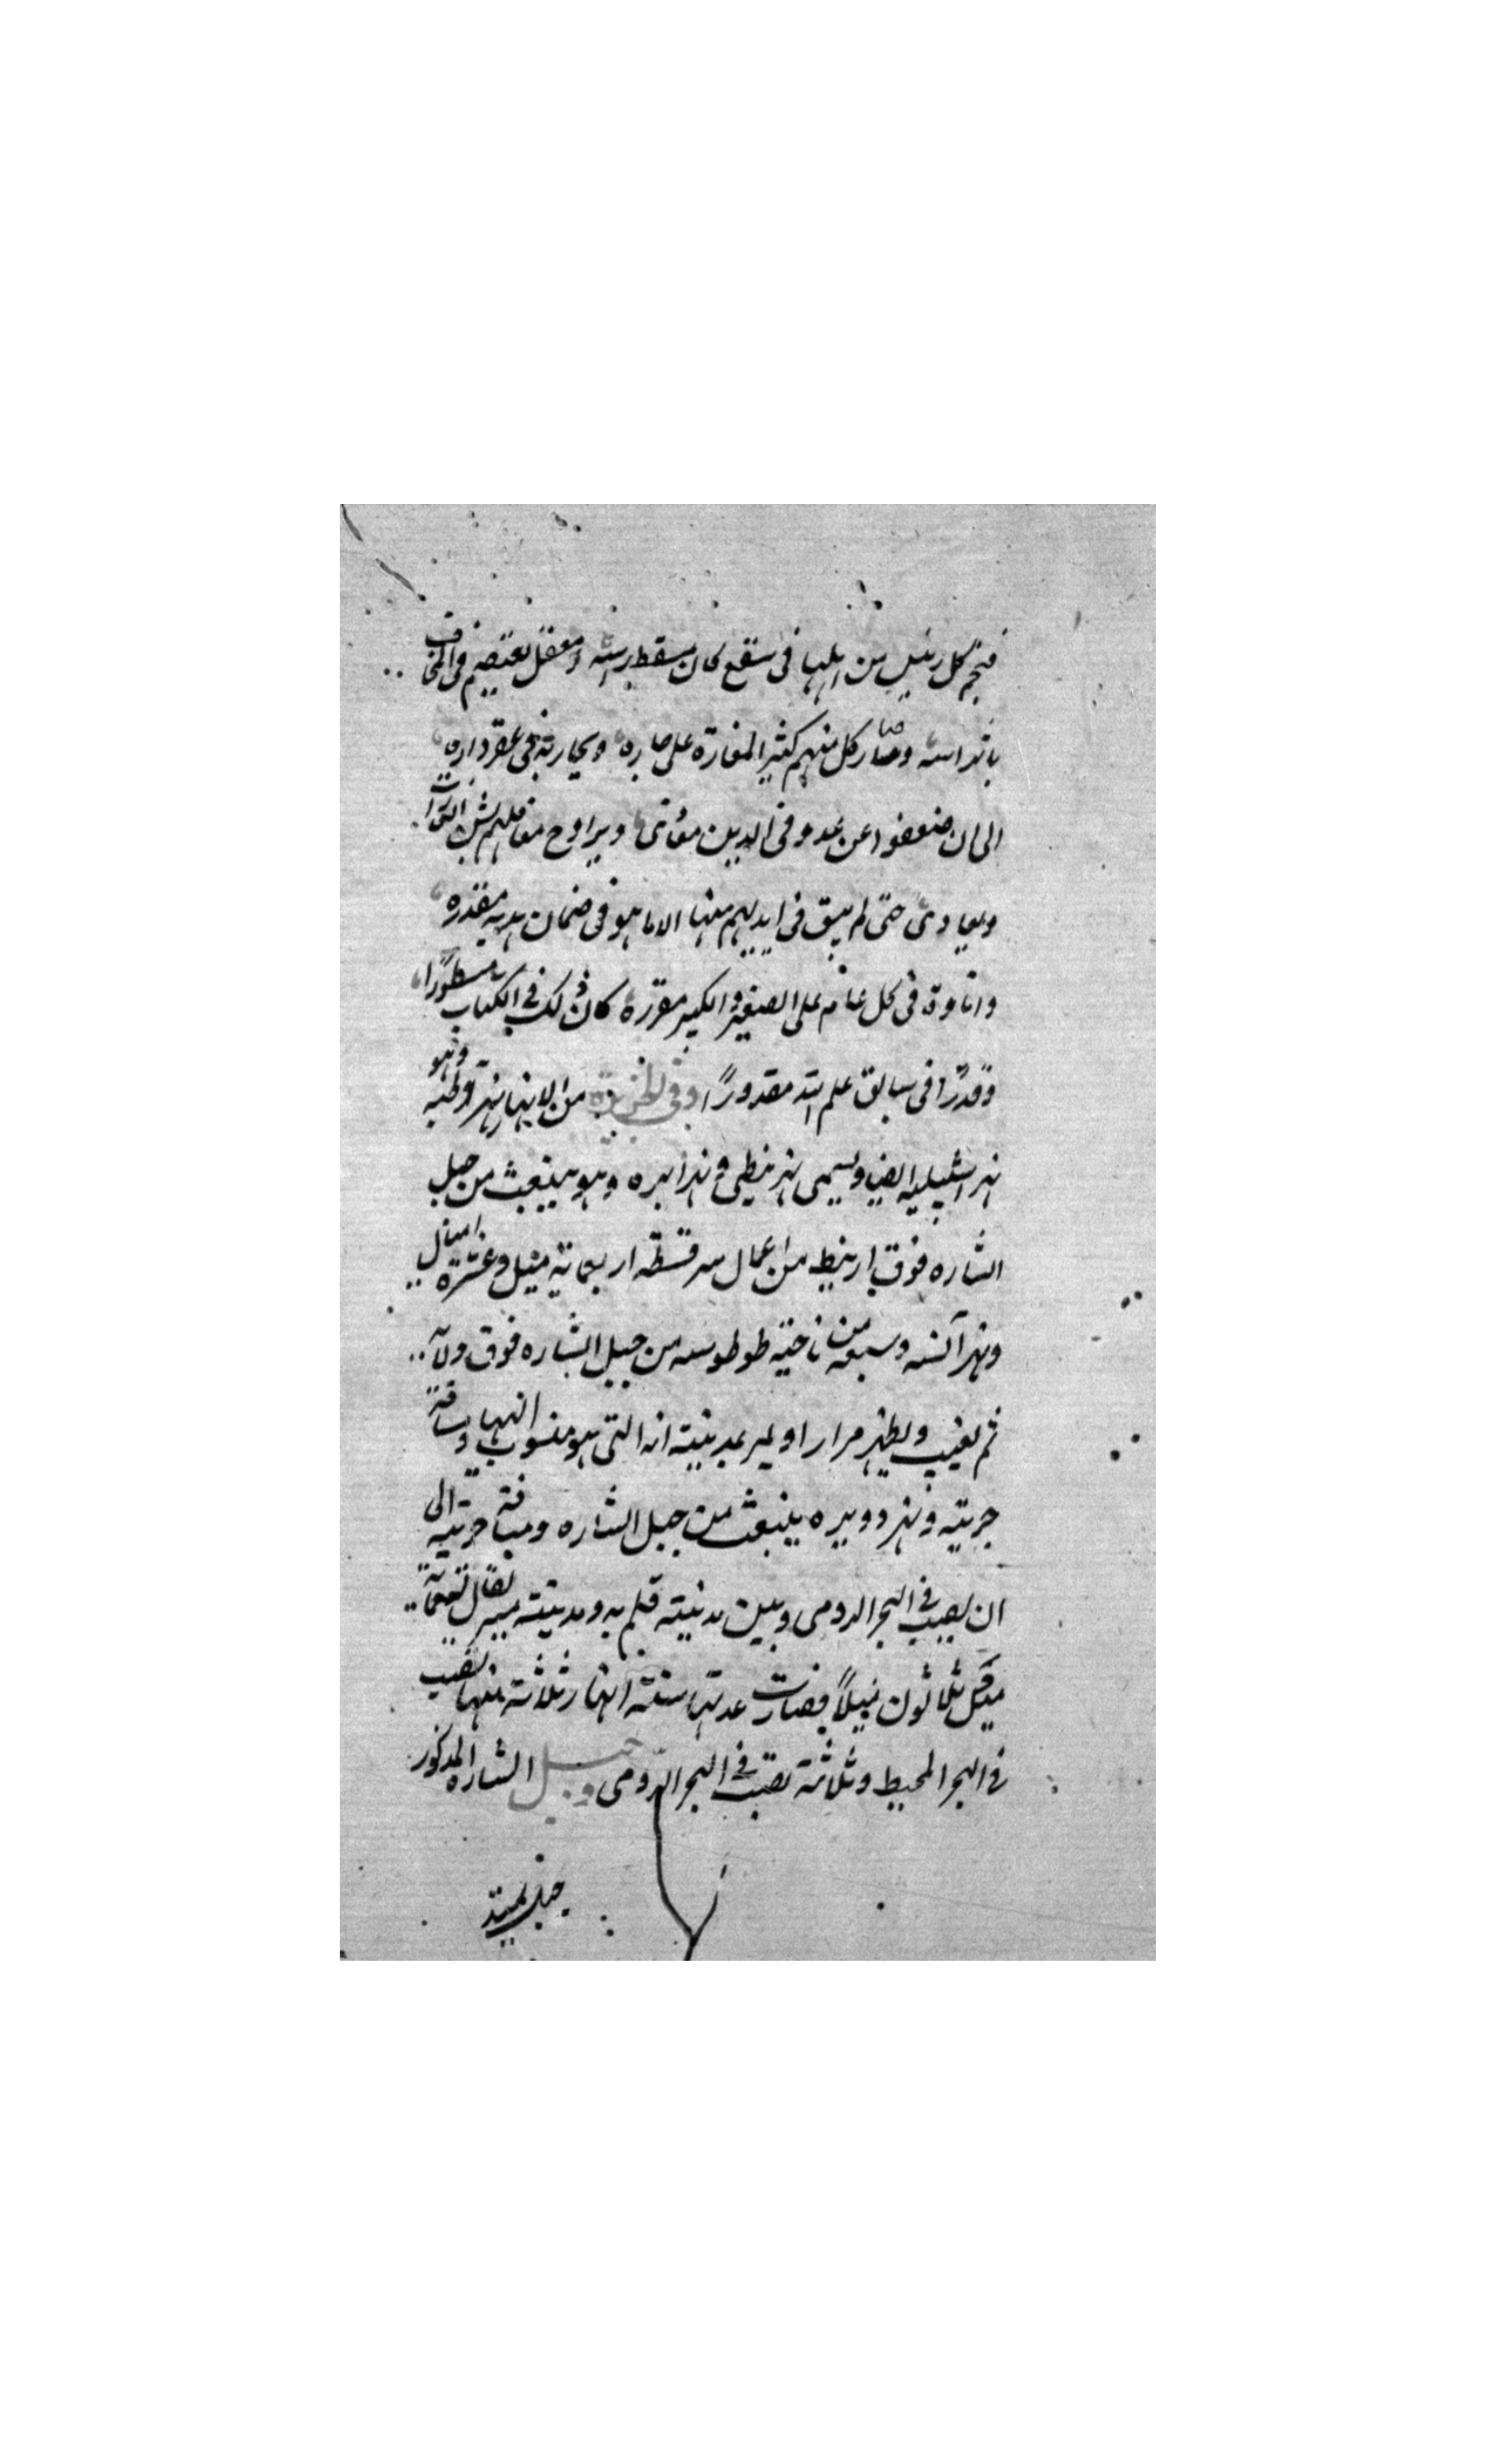 فنجم كل رئيس من اهلها فى سقع كان مسقط راسه ومعقل يعتصم فى المخاوف
باتراسه وصار كل منهم كثير المغارة على جاره ويحاربه فى عقر داره
الى ان ضعفوا عن عدو فى الدين مؤاتى ويراوح معاقلهم بشن الغارات
ويعادى حتى لم يبق فى ايديهم منها الا ما هو فى ضمان هدنه مقدره
واتاوة فى كل عام على الصغير والكبير مقررة كان ذلك فى الكتاب مسطورًا
وقدرًا فى سابق علم الله مقدورًا وفى الجزيرة من الانهار نهر قرطبه وهو
نهر اشبيليه ايضا ويسمى نهر بيطى ونهر ابره وهو ينبعث من جبل
الشاره فوق ارنيط من اعمال سرقسطه اربعمائة ميل وعشرة اميال
ونهر آنه من ناحية من جبل الشاره فوق
ثم يغيب ويظهر مرارا ويمر بمدينة انه التى هو منسوب اليها ومسافة
جريته ونهر دويره ينبعث من جبل الشاره ومسافة جريته الى
ان يصب فى البحر الرومى وبين مدينة ومدينة
ميل ثلاثون ميلاً فصارت عدتها ستة انهار ثلاثة منها تصب
فى البحر المحيط وثلاثة تصب فى البحر الرومى وجبل الشاره المذكور
جبل يمتد